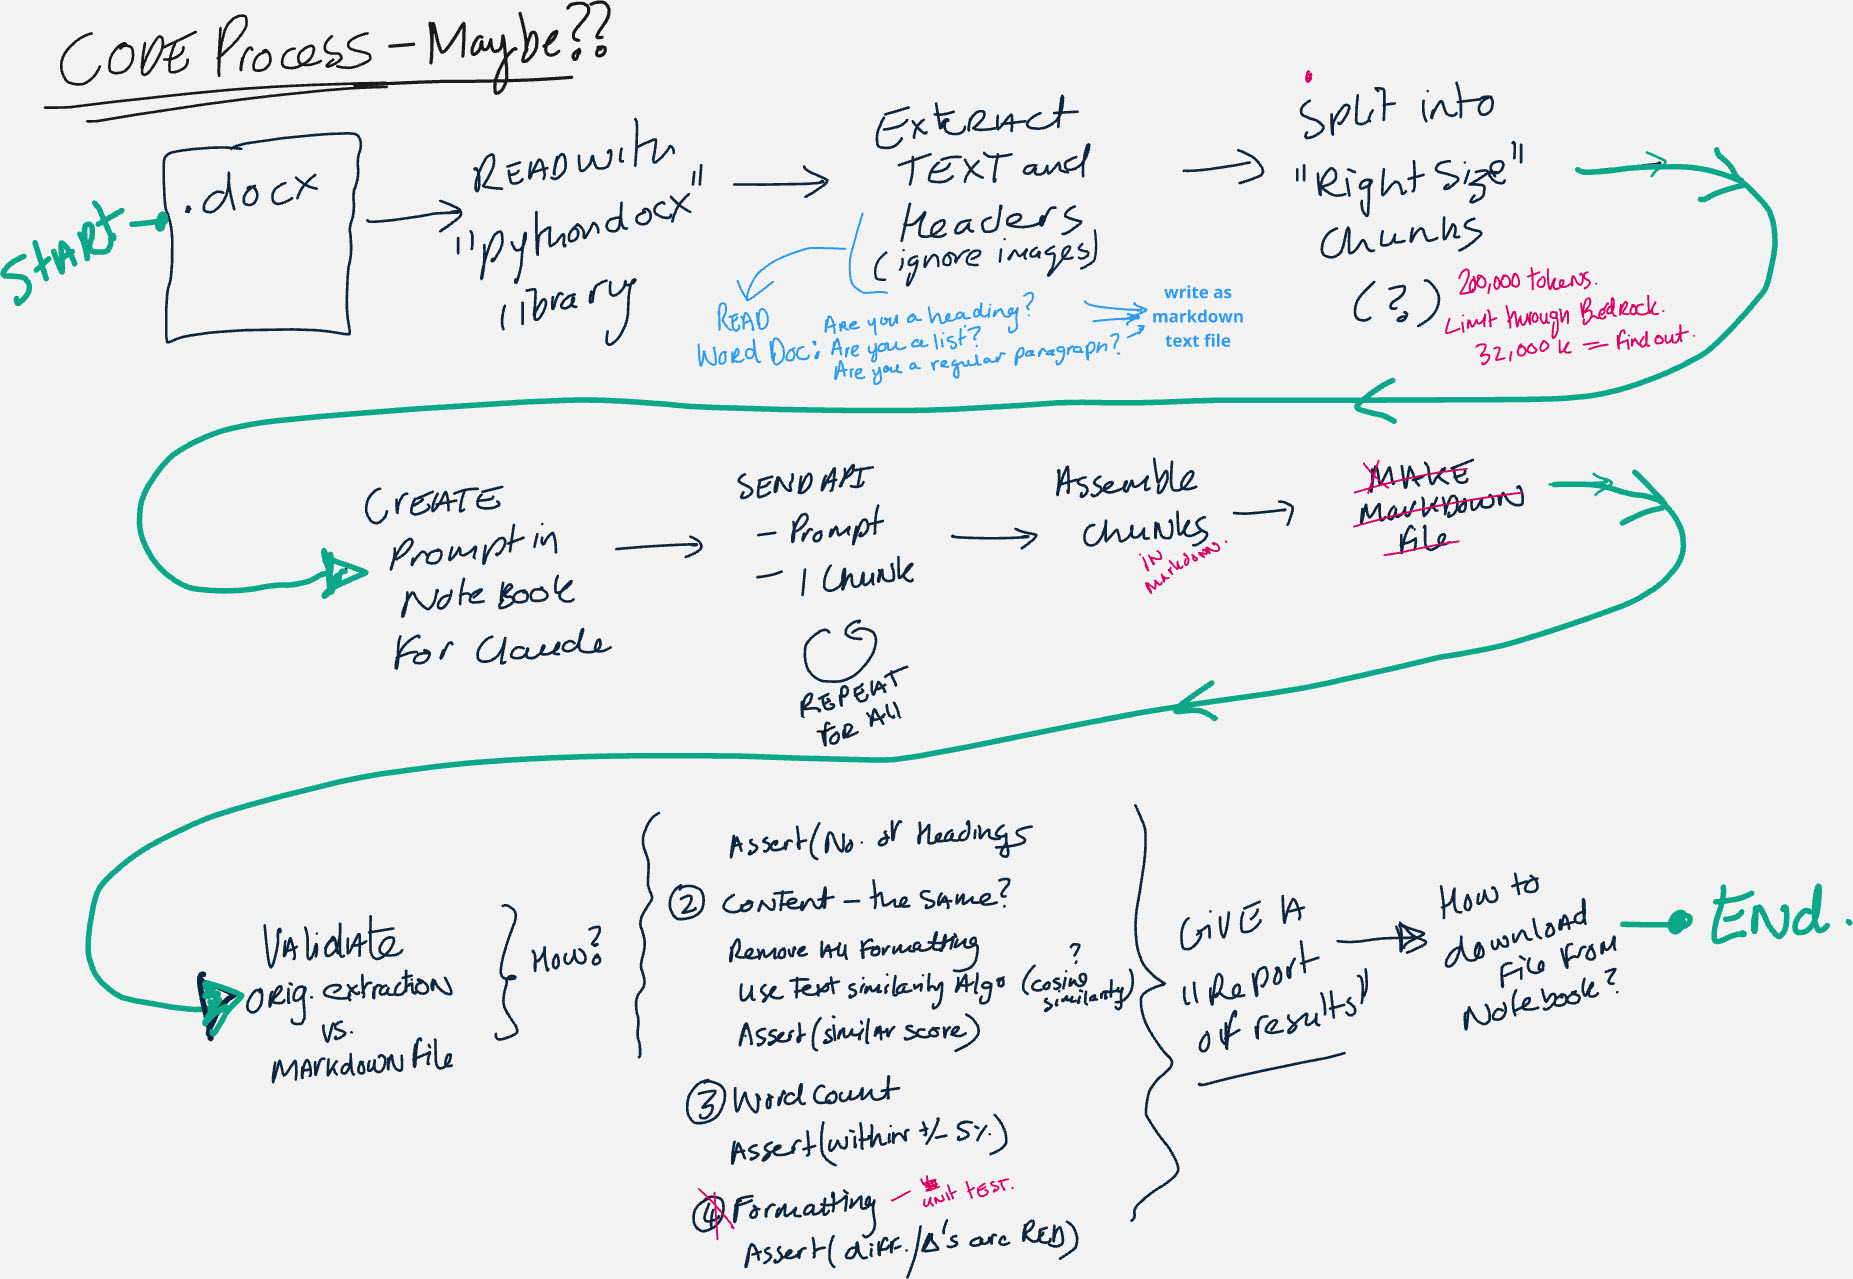 CODE Process - Maybe??
START
.docx
READ with
"pythondocx"
library
Extract
TEXT and
Headers
(ignore images)
READ
Word Doc:
Are you a heading?
Are you a list?
Are you a regular paragraph?
write as
markdown
text file
Split into
"Right Size"
Chunks
(?)
200,000 tokens.
Limit through Bedrock.
32,000 k = find out.
Create
Prompt in
NoteBook
For Claude
SEND API
- Prompt
- 1 Chunk
REPEAT
for All
Assemble
Chunks
in
markdown.
MAKE
MarkDown
file
Validate
orig. extraction
vs.
Markdown file
How?
Assert(No. of Headings
② Content - the same?
Remove All Formatting
Use Text similarity Algo
?
(cosine
similarity)
Assert(similar score)
③ Word Count
Assert(within +/- 5%)
④ Formatting
- unit test.
Assert( diff./Δ's are RED)
Give A
"Report
of results"
How to
download
file from
Notebook?
End.